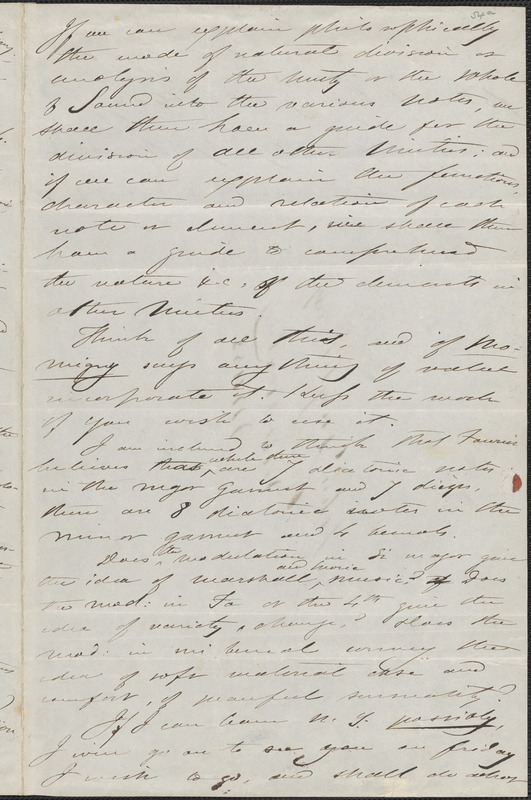 54a
If we can explain philosophically
the mode of natural division or
analysis of the Unity or the Whole
of Sound into the various notes, we
shall then have a guide for the
division of all other Unities; and
if we can explain the functions
character and relation of each
note or element, we shall then
have a guide to comprehend
the nature &c, of the elements in
other Unities.
Think of all this, and if Mo-
migny says anything of value
incorporate it. Keep the work
if you wish to use it.
I am inclined to think that Fourier
believes that while there are 7 diatonic notes
in the major gamut and 7 diezes,
there are 8 diatonic notes in the
minor gamut and 4 bemols.
Does the modulation in Si major give
the idea of marshall and heroic music? Does
the mod: in Fa or the 4th give the
idea of variety, change,? Does the
mod: in mi bemol convey the
idea of soft material ease and
comfort, of peaceful sensuality?
If I can leave N. Y. possibly,
I will go on to see you on friday
I wish to go, and shall do